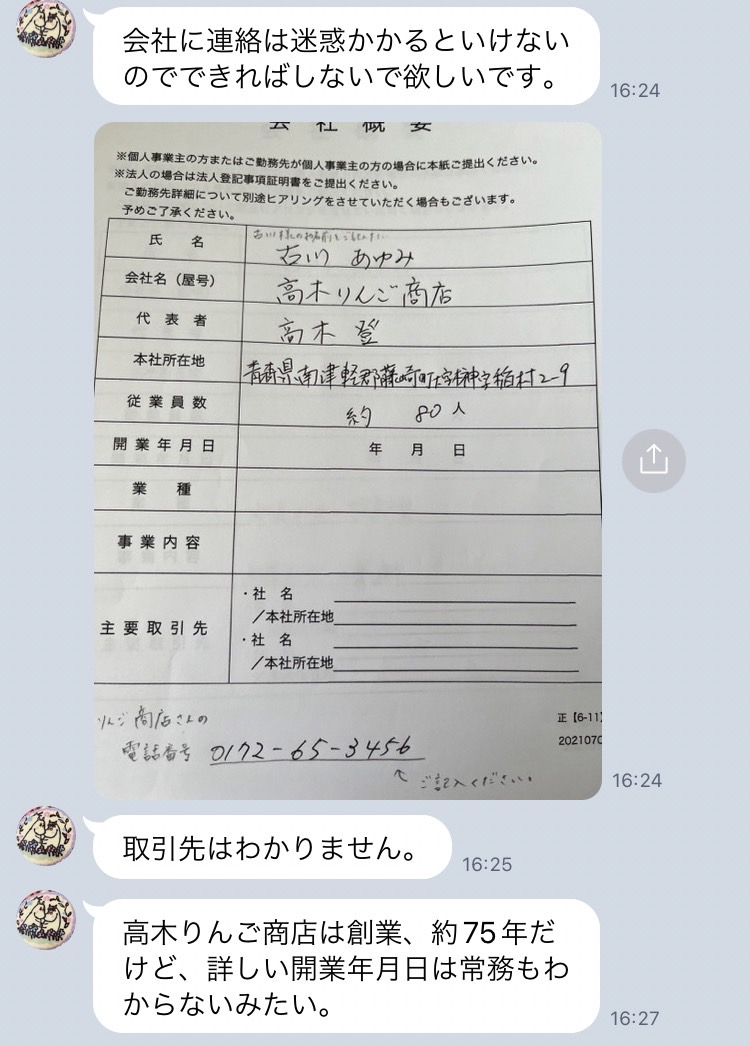 会社に連絡は迷惑かかるといけない
のでできればしないで欲しいです。
16:24
会 社 概 要
※個人事業主の方またはご勤務先が個人事業主の方の場合に本紙ご提出ください。
※法人の場合は法人登記事項証明書をご提出ください。
ご勤務先詳細について別途ヒアリングをさせていただく場合もございます。
予めご了承ください。
古川様のお名前をご記入下さい
氏 名 古川 あゆみ
会社名（屋号） 高木りんご商店
代 表 者 高木 登
本社所在地 青森県南津軽郡藤崎町大字榊字稲村2-9
従 業 員 数 約 80人
開 業 年 月 日 年 月 日
業 種
事 業 内 容
主 要 取 引 先
・社 名
/本社所在地
・社 名
/本社所在地
りんご商店さんの
電話番号 0172-65-3456
ご記入ください。
正【6-11】
2021070
16:24
取引先はわかりません。
16:25
高木りんご商店は創業、約75年だ
けど、詳しい開業年月日は常務もわ
からないみたい。
16:27